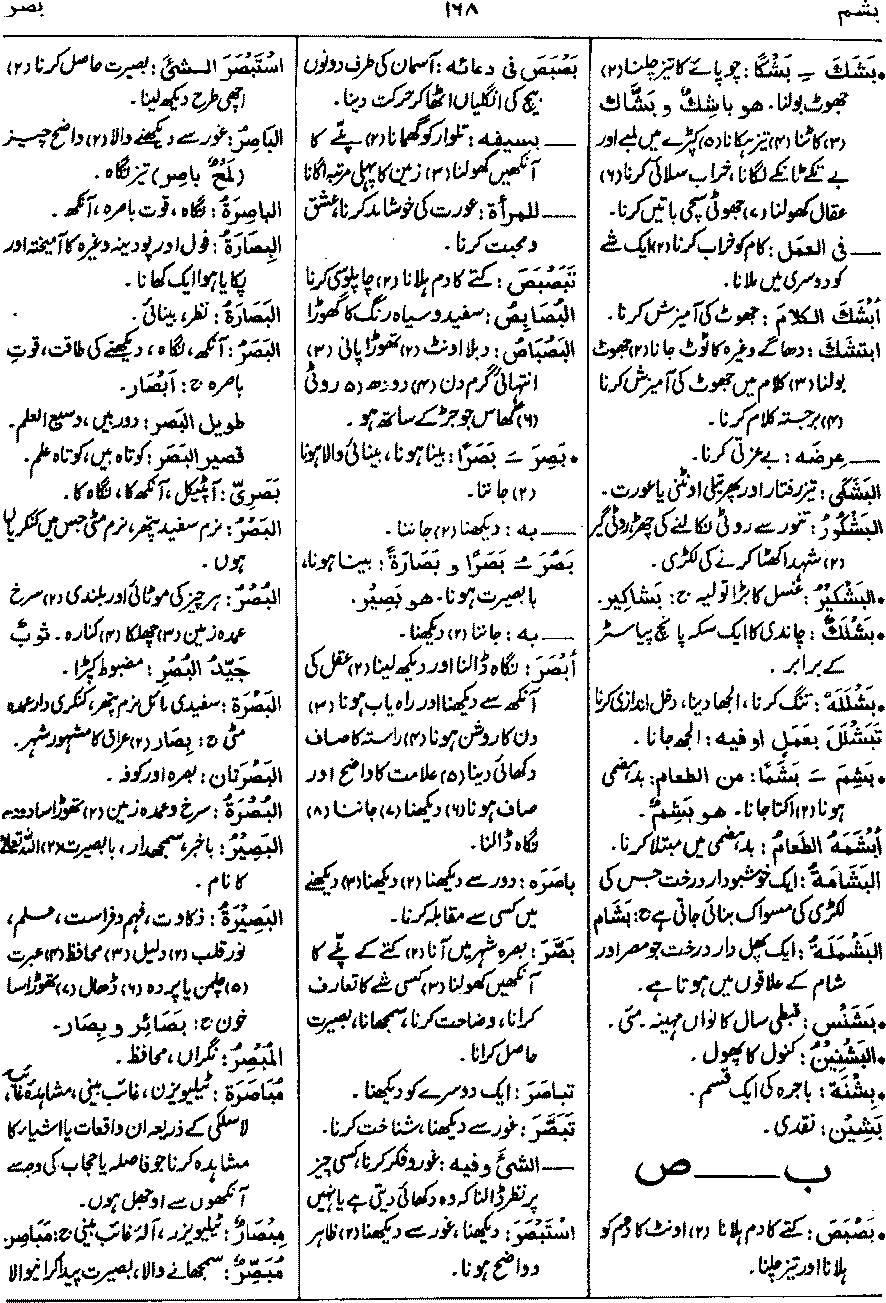 بشم
۱۶۸
بصر
• بَشَكَ ـِ بَشْكًا: چوپائے کا تیز چلنا (۲)
جھوٹ بولنا۔ هو باشِكٌ و بَشَّاك
(۳) کاٹنا (۴) تیز ہکانا (۵) کپڑے میں لمبے اور
بے تکے ٹانکے لگانا، خراب سلائی کرنا (۶)
عقال کھولنا (۷) جھوٹی سچی باتیں کرنا۔
ــــ فى العمل: کام کو خراب کرنا (۲) ایک شے
کو دوسری میں ملانا۔
أَبْشَكَ الكلامَ: جھوٹ کی آمیزش کرنا۔
ابتشك: دھاگے وغیرہ کا ٹوٹ جانا (۲) جھوٹ
بولنا (۳) کلام میں جھوٹ کی آمیزش کرنا
(۴) برجستہ کلام کرنا۔
ــــ عِرضَه: بے عزتی کرنا۔
البَشَكَى: تیز رفتار اور پھرتیلی اونٹنی یا عورت۔
البَشْكُورُ: تنور سے روٹی نکالنے کی چھڑ، روٹی گیر
(۲) شہد اکٹھا کرنے کی لکڑی۔
• البَشْكِيْرُ: غسل کا بڑا تولیہ ج: بَشَاكِير۔
• بَشْلَكٌ: چاندی کا ایک سکہ پانچ پیاسٹر
کے برابر۔
• بَشْلَلَه: تنگ کرنا، الجھا دینا، دخل اندازی کرنا
تَبَشْلَلَ بعَمَلٍ او فيه: الجھ جانا۔
• بَشِمَ ـَ بَشَمًا: من الطعام: بدہضمی
ہونا (۲) اکتا جانا۔ هو بَشِمٌ۔
أَبْشَمَهُ الطَعامُ: بدہضمی میں مبتلا کرنا۔
البَشَامَةُ: ایک خوشبودار درخت جس کی
لکڑی کی مسواک بنائی جاتی ہے ج: بَشَام
البَشْمَلَةُ: ایک پھل دار درخت جو مصر اور
شام کے علاقوں میں ہوتا ہے۔
• بَشَنْس: قبطی سال کا نواں مہینہ۔ مئی۔
• البَشْنِيْنُ: کنول کا پھول۔
• بِشْنَة: باجرہ کی ایک قسم۔
بَشِيْن: نقدی۔
ب ــــ ص
• بَصْبَصَ: کتے کا دم ہلانا (۲) اونٹ کا دم کو
ہلانا اور تیز چلنا۔
بَصْبَصَ فى دعائه: آسمان کی طرف دونوں
بیچ کی انگلیاں اٹھا کر حرکت دینا۔
ــــ بسيفه: تلوار کو گھمانا (۲) پِلّے کا
آنکھیں کھولنا (۳) زمین کا پہلی مرتبہ اگانا
ــــ للمرأة: عورت کی خوشامد کرنا، عشق
و محبت کرنا۔
تَبَصْبَصَ: کتے کا دم ہلانا (۲) چاپلوسی کرنا
البُصَابِصُ: سفید و سیاہ رنگ کا گھوڑا
البَصْبَاصُ: دبلا اونٹ (۲) تھوڑا پانی (۳)
انتہائی گرم دن (۴) دودھ (۵) روٹی
(۶) گھاس جو جڑ کے ساتھ ہو۔
• بَصِرَ ـَ بَصَرًا: بینا ہونا، بینائی والا ہونا
(۲) جاننا۔
ــــ به: دیکھنا (۲) جاننا۔
بَصُرَ ـُ بَصَرًا و بَصَارَةً: بینا ہونا،
بابصیرت ہونا۔ هو بَصِيْر۔
ــــ به: جاننا (۲) دیکھنا۔
أَبْصَرَ: نگاہ ڈالنا اور دیکھ لینا (۲) عقل کی
آنکھ سے دیکھنا اور راہ یاب ہونا (۳)
دن کا روشن ہونا (۴) راستہ کا صاف
دکھائی دینا (۵) علامت کا واضح اور
صاف ہونا (۶) دیکھنا (۷) جاننا (۸)
نگاہ ڈالنا۔
باصَرَه: دور سے دیکھنا (۲) دیکھنا (۳) دیکھنے
میں کسی سے مقابلہ کرنا۔
بَصَّرَ: بصرہ شہر میں آنا (۲) کتے کے پِلّے کا
آنکھیں کھولنا (۳) کسی شے کا تعارف
کرانا، وضاحت کرنا، سمجھانا، بصیرت
حاصل کرانا۔
تباصَرَ: ایک دوسرے کو دیکھنا۔
تَبَصَّرَ: غور سے دیکھنا، شناخت کرنا۔
ــــ الشئَ و فيه: غور و فکر کرنا، کسی چیز
پر نظر ڈالنا کہ وہ دکھائی دیتی ہے یا نہیں
اسْتَبْصَرَ: دیکھنا، غور سے دیکھنا (۲) ظاہر
و واضح ہونا۔
اسْتَبْصَرَ الـشـئَ: بصیرت حاصل کرنا (۲)
اچھی طرح دیکھ لینا۔
البَاصِرُ: غور سے دیکھنے والا (۲) واضح چیز
(لَمْحٌ باصِر) تیز نگاہ۔
الباصِرَةُ: نگاہ، قوت باصرہ، آنکھ۔
البِصَارَةُ: فول اور پودینہ وغیرہ کا آمیختہ اور
پکایا ہوا ایک کھانا۔
البَصَارَةُ: نظر، بینائی۔
البَصَرُ: آنکھ، نگاہ، دیکھنے کی طاقت، قوتِ
باصرہ ج: أَبْصَار۔
طويل البَصر: دور بیں، وسیع العلم۔
قصير البَصَر: کوتاہ بیں، کوتاہ علم۔
بَصَرِىّ: آپٹیکل، آنکھ کا، نگاہ کا۔
البَصْرُ: نرم سفید پتھر، نرم مٹی جس میں کنکریاں
ہوں۔
البُصْرُ: ہر چیز کی موٹائی اور بلندی (۲) سرخ
عمدہ زمین (۳) چھلکا (۴) کنارہ۔ ثوبٌ
جَيِّدُ البُصْر: مضبوط کپڑا۔
البَصْرَة: سفیدی مائل نرم پتھر، کنکری دار عمدہ
مٹی ج: بِصَار (۲) عراق کا مشہور شہر۔
البَصْرَتان: بصرہ اور کوفہ۔
البُصْرَةُ: سرخ و عمدہ زمین (۲) تھوڑا سا دودھ
البَصِيْرُ: باخبر، سمجھدار، بابصیرت (۲) اللہ تعالیٰ
کا نام۔
البَصِيْرَةُ: ذکاوت، فہم و فراست، علم،
نورِ قلب (۲) دلیل (۳) محافظ (۴) عبرت
(۵) چلمن یا پردہ (۶) ڈھال (۷) تھوڑا سا
خون ج: بَصَائِر و بِصَار۔
المُبْصِرُ: نگراں، محافظ۔
مُبَاصَرَة: ٹیلیویزن، غائب بینی، مشاہدہ غائب،
لاسلکی کے ذریعہ ان واقعات یا اشیاء کا
مشاہدہ کرنا جو فاصلہ یا حجاب کی وجہ سے
آنکھوں سے اوجھل ہوں۔
مِبْصَارٌ: ٹیلیویزر، آلۂ غائب بینی ج: مَبَاصِر۔
مُبَصِّرٌ: سمجھانے والا، بصیرت پیدا کرانیوالا